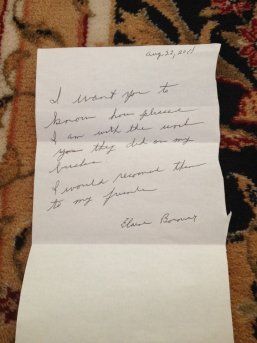 Aug, 22, 2011
I want you to
know how please
I am with the work
you they did on my
bushes
I would recomed them
to my friends
Elaine